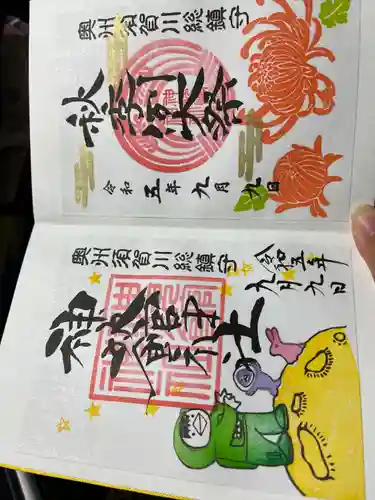 奥州須賀川総鎮守
秋季例大祭
令和五年九月九日
奥州須賀川総鎮守
令和五年
九月九日
神炊館神社